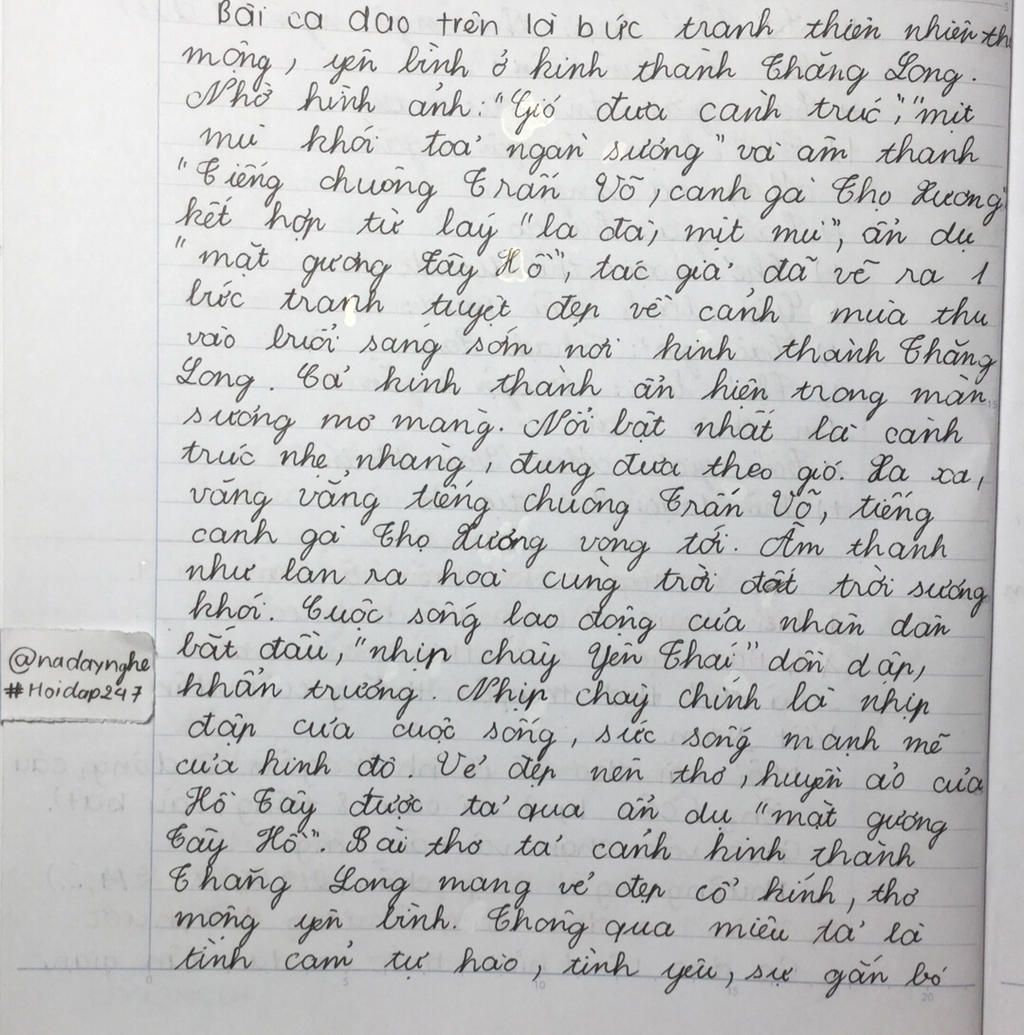 Bài ca dao trên là bức tranh thiên nhiên th
mộng, yên bình ở kinh thành Thăng Long.
Nhờ hình ảnh: "Gió đưa cành trúc", "mịt
mù khói toả ngàn sương" và âm thanh
"Tiếng chuông Trấn Võ, canh gà Thọ Xương"
kết hợp từ láy "la đà, mịt mù", ẩn dụ
"mặt gương Tây Hồ", tác giả đã vẽ ra 1
bức tranh tuyệt đẹp về cảnh mùa thu
vào buổi sáng sớm nơi kinh thành Thăng
Long. Cả kinh thành ẩn hiện trong màn
sương mơ màng. Nổi bật nhất là cành
trúc nhẹ nhàng, đung đưa theo gió. Xa xa,
văng vẳng tiếng chuông Trấn Võ, tiếng
canh gà Thọ Xương vọng tới. Âm thanh
như lan ra hoà cùng trời đất trời sương
khói. Cuộc sống lao động của nhân dân
bắt đầu, "nhịp chày Yên Thái" dồn dập,
khẩn trương. Nhịp chày chính là nhịp
đập của cuộc sống, sức sống mạnh mẽ
của kinh đô. Vẻ đẹp nên thơ, huyền ảo của
Hồ Tây được tả qua ẩn dụ "mặt gương
Tây Hồ". Bài thơ tả cảnh kinh thành
Thăng Long mang vẻ đẹp cổ kính, thơ
mộng yên bình. Thông qua miêu tả là
tình cảm tự hào, tình yêu, sự gắn bó
@nadaynghe
#Hoidap247